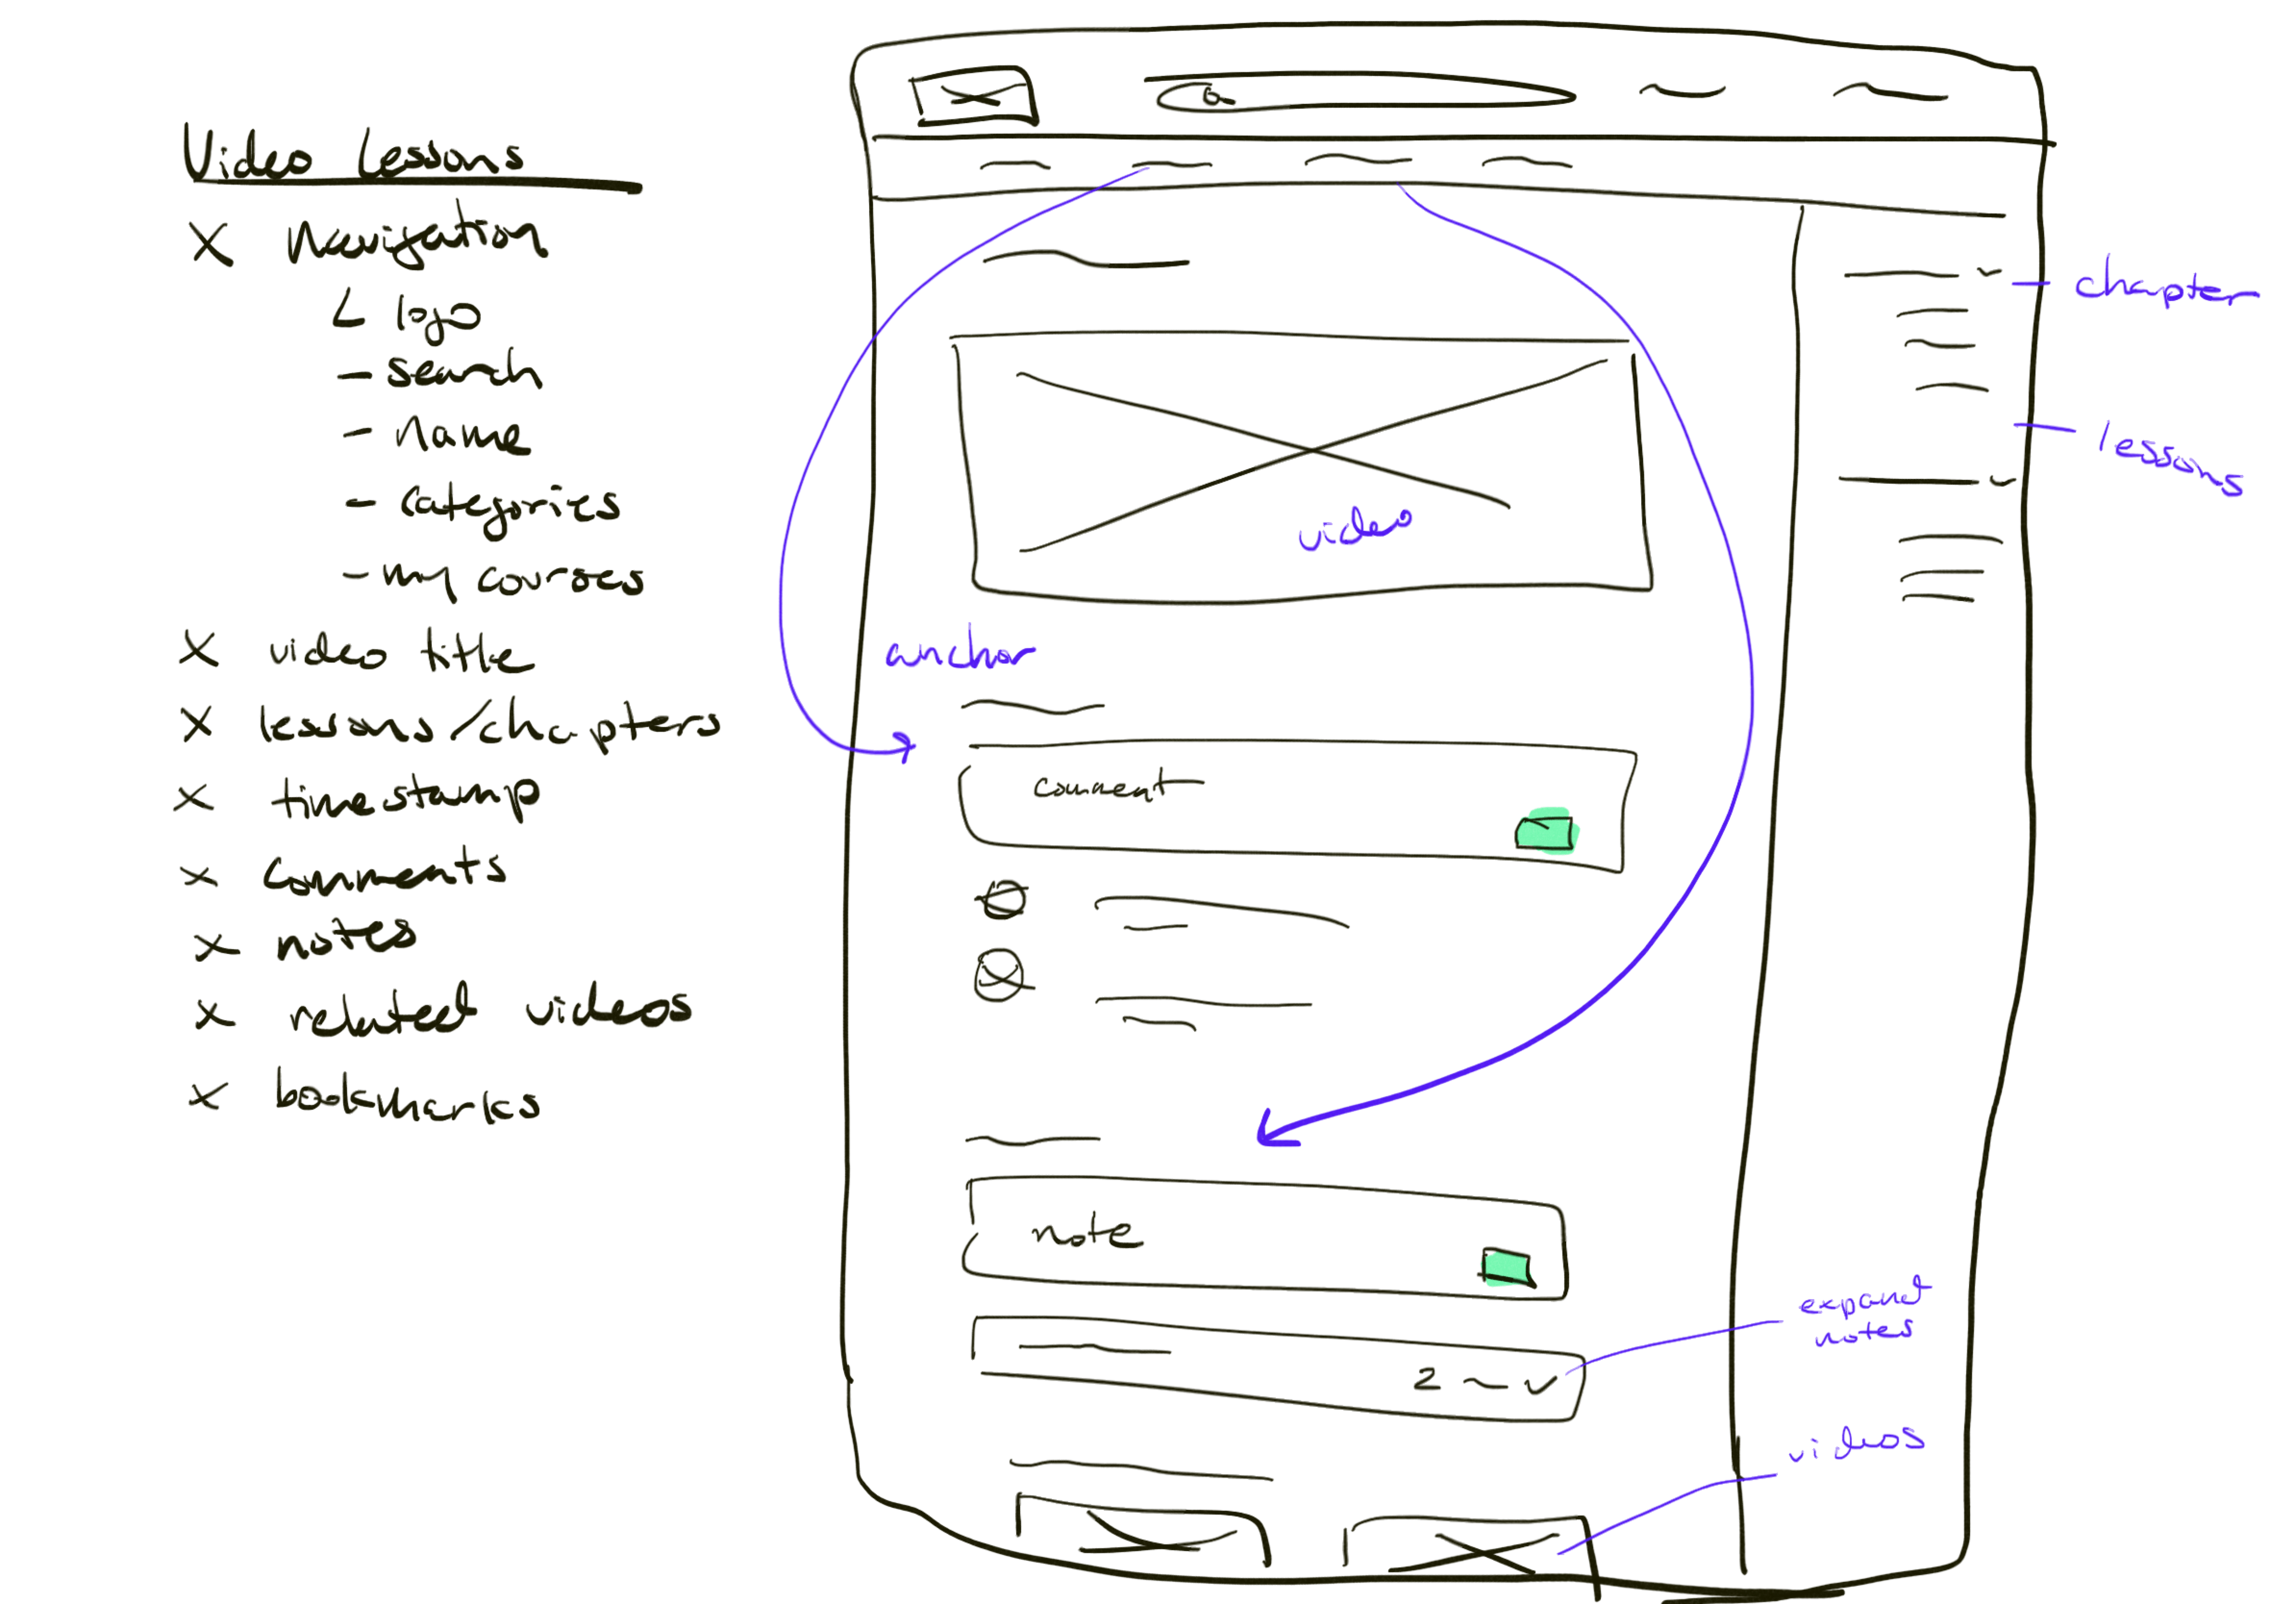 Video lessons
x Navigation
L logo
- search
- name
- categories
- my courses
x video title
x lessons/chapters
x timestamp
x comments
x notes
x related videos
x bookmarks
chapter
lessons
video
anchor
comment
note
2
expand
notes
videos